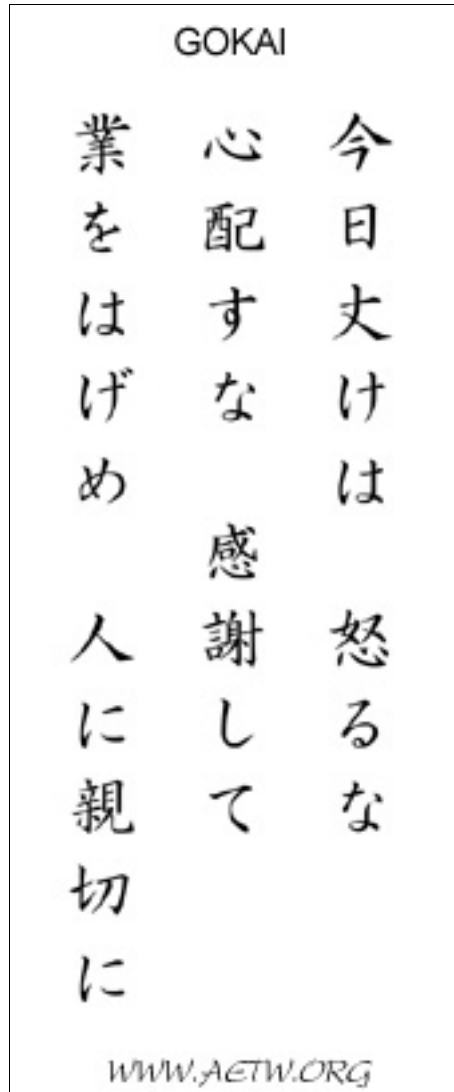 GOKAI
今日丈けは 怒るな
心配すな 感謝して
業をはげめ 人に親切に
WWW.AETW.ORG